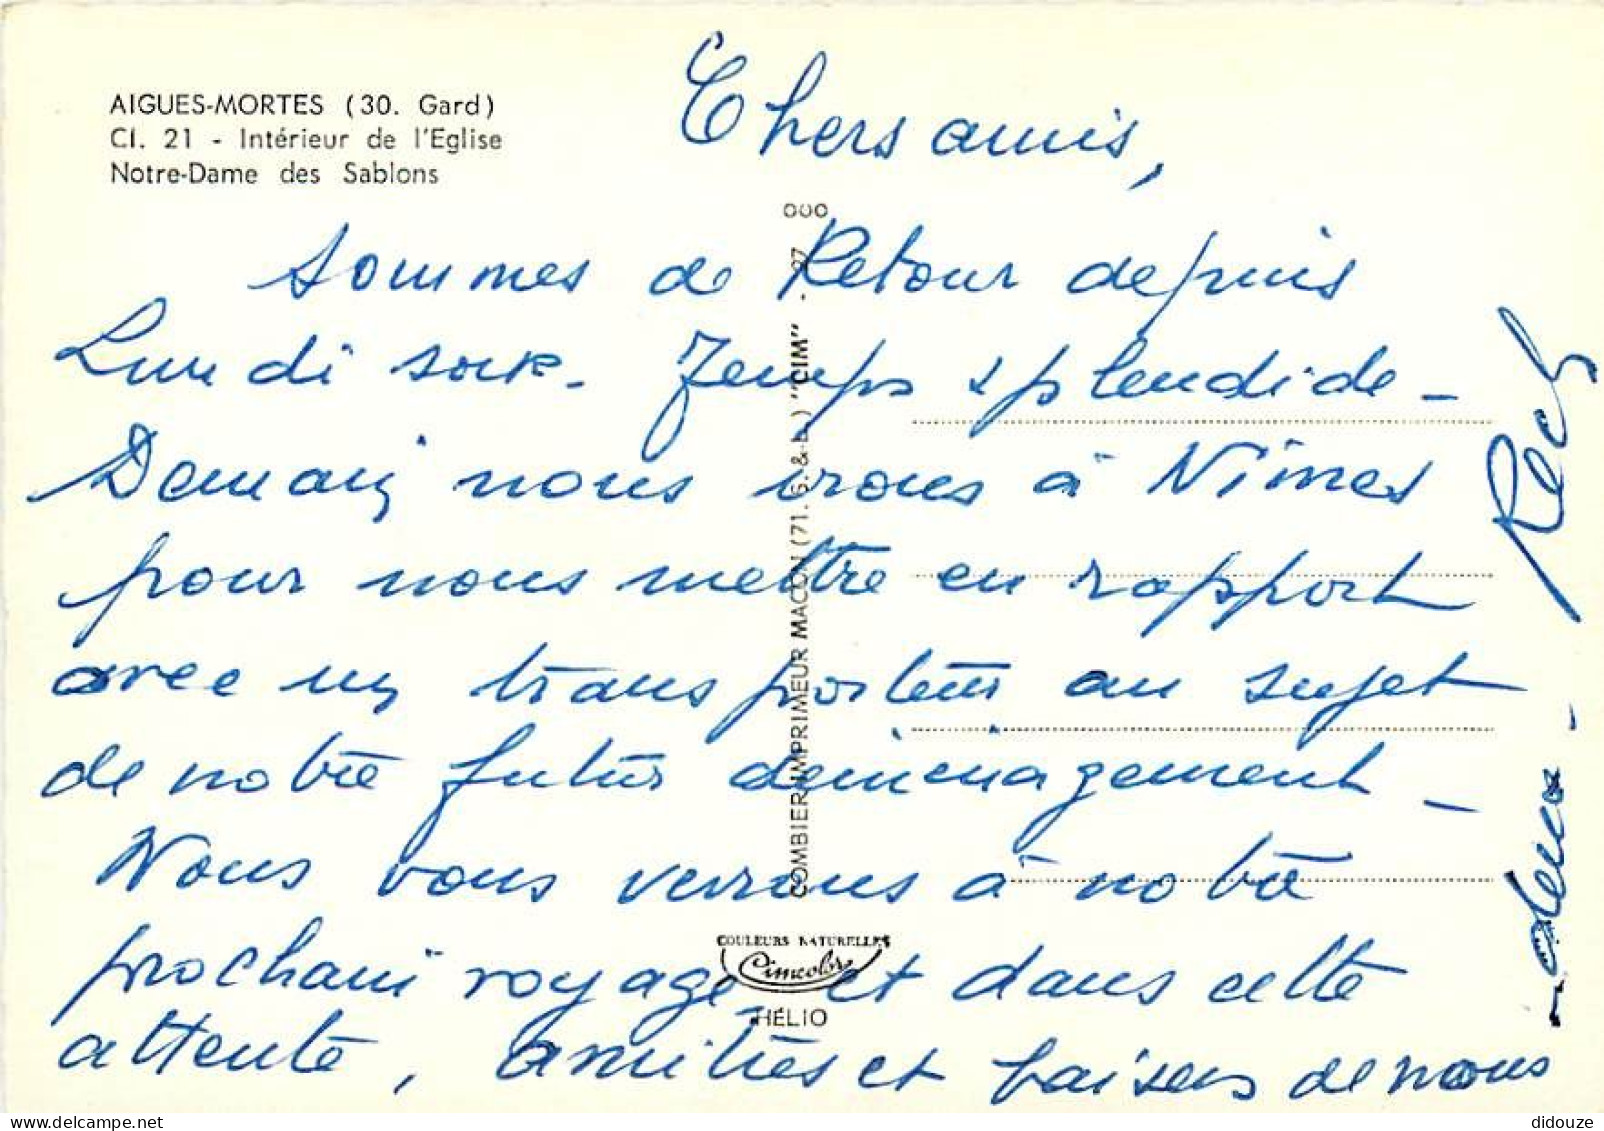 AIGUES-MORTES (30. Gard)
Cl. 21 - Intérieur de l'Eglise
Notre-Dame des Sablons
Chers amis,
sommes de Retour depuis
Lundi soir. Temps splendide -
Demain nous irons à Nîmes
pour nous mettre en rapport
avec un transporteur au sujet
de notre futur déménagement -
Nous vous verrons à notre
prochain voyage et dans cette
attente, amitiés et baisers de nous
deux -
COMBIER IMPRIMEUR MACON (71. S. & L.) "CIM"
COULEURS NATURELLES
Cimcolor
HÉLIO
didouze